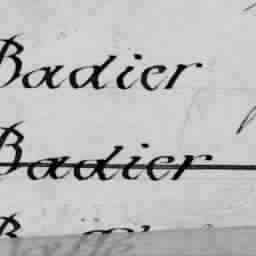 Badier
Badier